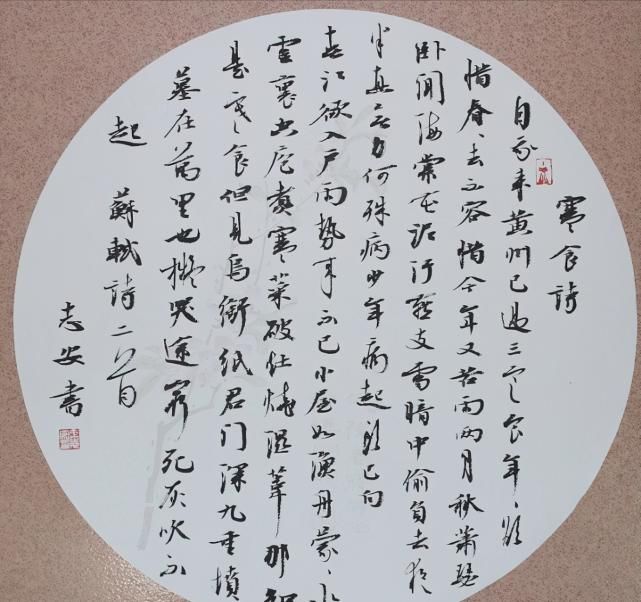 寒食詩
自我来黄州已過三寒食年々欲
惜春々去不容惜今年又苦雨兩月秋蕭瑟
卧聞海棠花泥汙燕支雪暗中偷負去夜
半真有力何殊病少年病起頭已白
春江欲入户雨勢来不已小屋如漁舟蒙々水
雲裏空庖煮寒菜破灶燒濕葦那知
是寒食但見烏銜紙君门深九重墳
墓在萬里也擬哭途窮死灰吹不
起 蘇軾詩二首
志安書